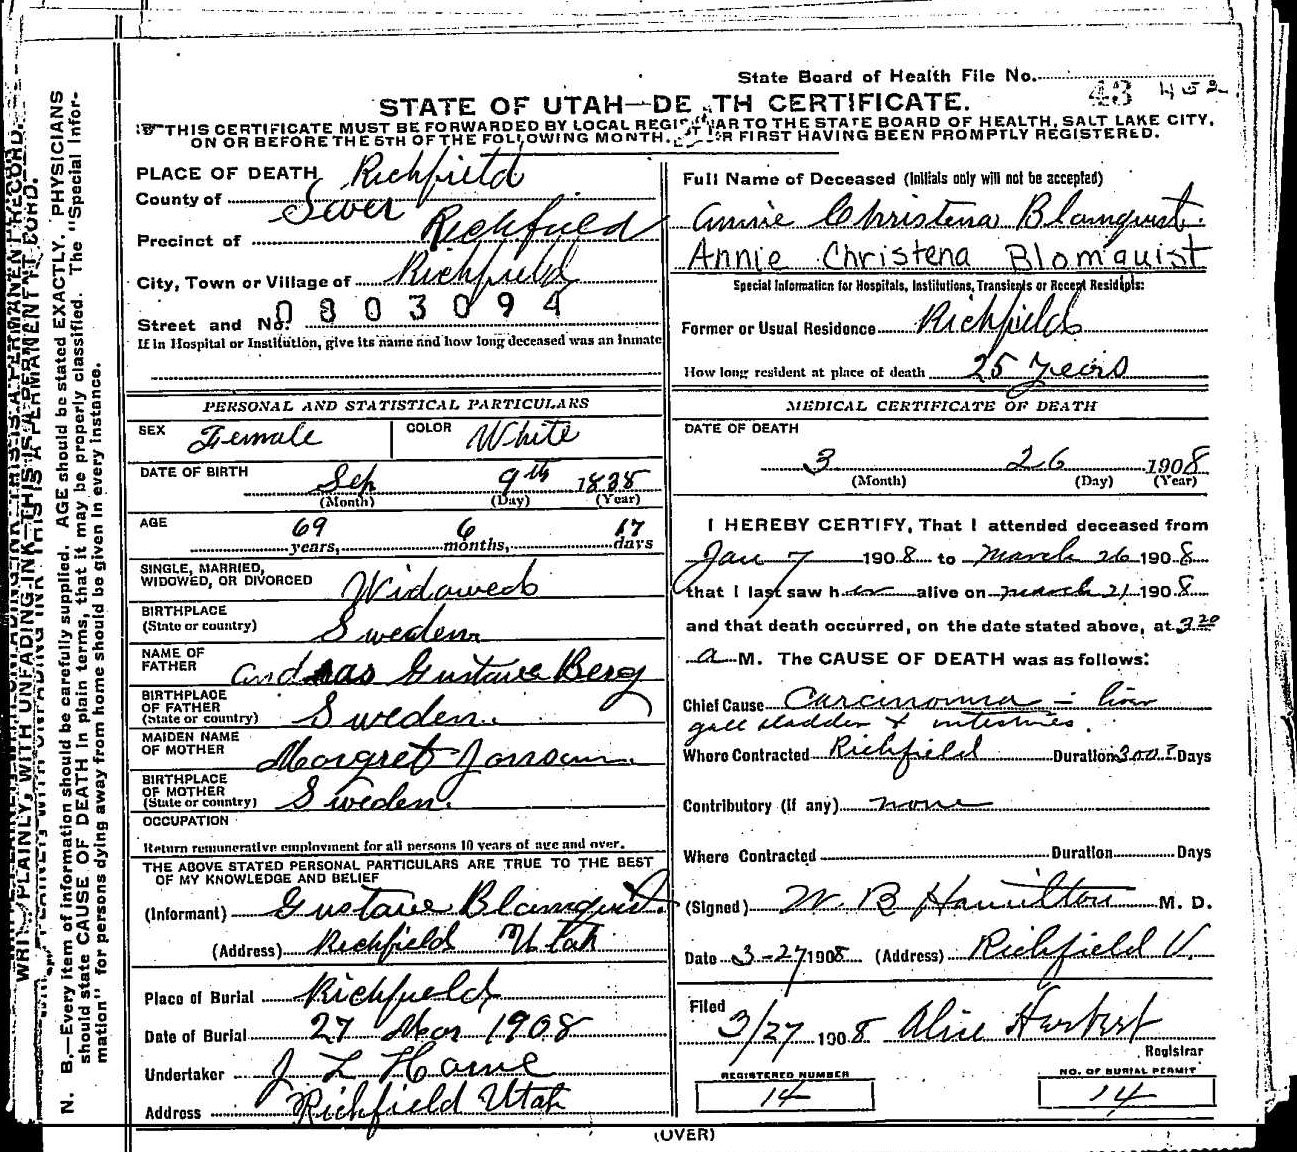 State Board of Health File No. 43 452
STATE OF UTAH—DE TH CERTIFICATE.
THIS CERTIFICATE MUST BE FORWARDED BY LOCAL REGIS AR TO THE STATE BOARD OF HEALTH, SALT LAKE CITY,
ON OR BEFORE THE 5TH OF THE FOLLOWING MONTH, R FIRST HAVING BEEN PROMPTLY REGISTERED.
PLACE OF DEATH Richfield
County of Sever
Precinct of Richfield
City, Town or Village of Richfield
0803094
Street and No.
If in Hospital or Institution, give its name and how long deceased was an inmate
PERSONAL AND STATISTICAL PARTICULARS
SEX Female COLOR White
DATE OF BIRTH Sep 9th 1838
(Month) (Day) (Year)
AGE 69 years, 6 months, 17 days
SINGLE, MARRIED,
WIDOWED, OR DIVORCED Widowed
BIRTHPLACE
(State or country) Sweden
NAME OF
FATHER Andreas Gustave Berg
BIRTHPLACE
OF FATHER
(State or country) Sweden
MAIDEN NAME
OF MOTHER Margret
BIRTHPLACE
OF MOTHER
(State or country) Sweden.
OCCUPATION
Return remunerative employment for all persons 10 years of age and over.
THE ABOVE STATED PERSONAL PARTICULARS ARE TRUE TO THE BEST
OF MY KNOWLEDGE AND BELIEF
(Informant) Gustave Blomquist.
(Address) Richfield Utah
Place of Burial Richfield
Date of Burial 27 Mar 1908
Undertaker J L Horne
Address Richfield Utah
Full Name of Deceased (Initials only will not be accepted)
Annie Christena Blomquist.
Annie Christena Blomquist
Special Information for Hospitals, Institutions, Transients or Recent Residents:
Former or Usual Residence Richfield
How long resident at place of death 25 years
MEDICAL CERTIFICATE OF DEATH
DATE OF DEATH
3 26 1908
(Month) (Day) (Year)
I HEREBY CERTIFY, That I attended deceased from
Jan 7 1908 to March 26 1908
that I last saw her alive on March 21 1908
and that death occurred, on the date stated above, at 3 20
a M. The CAUSE OF DEATH was as follows:
Chief Cause Carcinoma - liver
gall bladder & intestines.
Where Contracted Richfield Duration 300? Days
Contributory (if any) none
Where Contracted Duration Days
(Signed) W. B Hamilton M. D.
Date 3-27 1908 (Address) Richfield U.
Filed
3/27 1908 Alice Herbert
Registrar
REGISTERED NUMBER
14
NO. OF BURIAL PERMIT
14
(OVER)
WRITE PLAINLY, WITH UNFADING INK—THIS IS A PERMANENT RECORD.
N. B.—Every item of information should be carefully supplied. AGE should be stated EXACTLY. PHYSICIANS
should state CAUSE OF DEATH in plain terms, that it may be properly classified. The "Special Infor-
mation" for persons dying away from home should be given in every instance.